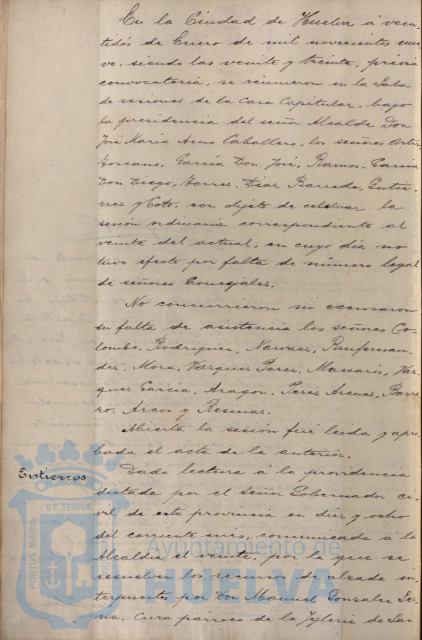 En la Ciudad de Huelva á vein-
tidós de Enero de mil novecientos nue-
ve, siendo las veinte y treinta, previa
convocatoria, se reunieron en la Sala
de sesiones de la Casa Capitular, bajo
la presidencia del señor Alcalde Don
José María Amo Caballero, los señores
Toscano, García Don José, Ramos, García
Don Diego, Torres, Diaz Barreda, Gutie-
rrez y Coto, con objeto de celebrar la
sesión ordinaria correspondiente al
veinte del actual, en cuyo día no
tuvo efecto por falta de número legal
de señores Concejales.
No concurrieron ni excusaron
su falta de asistencia los señores Co-
lombo, Rodriguez, Narvaez, Rusfernan-
dez, Mora, Vazquez Perez, Mascarós, Vaz-
quez García, Aragon, Perez Arenas, Barre-
ro, Arcos y Resinas.
Abierta la sesión fué leida y apro-
bada el acta de la anterior.
Entierros
Dada lectura á la providencia
dictada por el Señor Gobernador ci-
vil de esta provincia en diez y ocho
del corriente mes, comunicada á la
Alcaldia el veinte, por la que se
resuelven los recursos de alzada in-
terpuestos por Don Manuel Gonzalez Ser-
na, Cura parroco de la Iglesia de San
PORTUS MARIS ET TERRAE
Ayuntamiento de
HUELVA